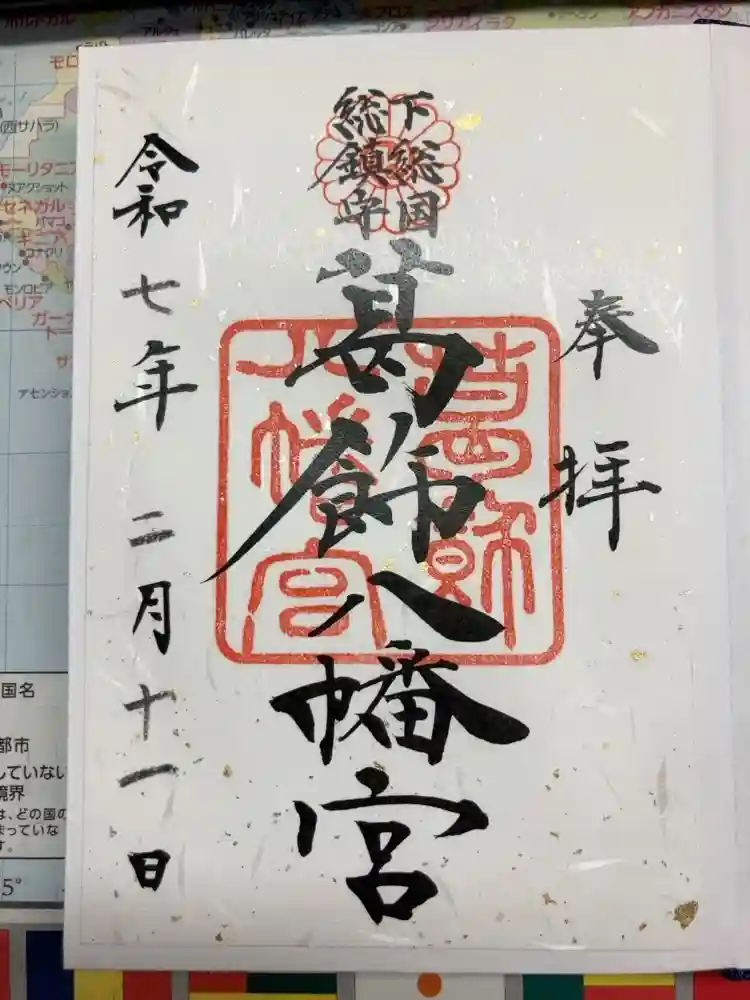 奉拝
下総国
総鎮守
葛飾八幡宮
葛飾
八幡宮
令和七年二月十一日
モーリタニア
ヌアクショット
セネガル
ギニア
コナクリ
モンロビア
(西サハラ)
バマコ
国名
都市
していない
境界
は、どの国の
まっていな
す。
5°